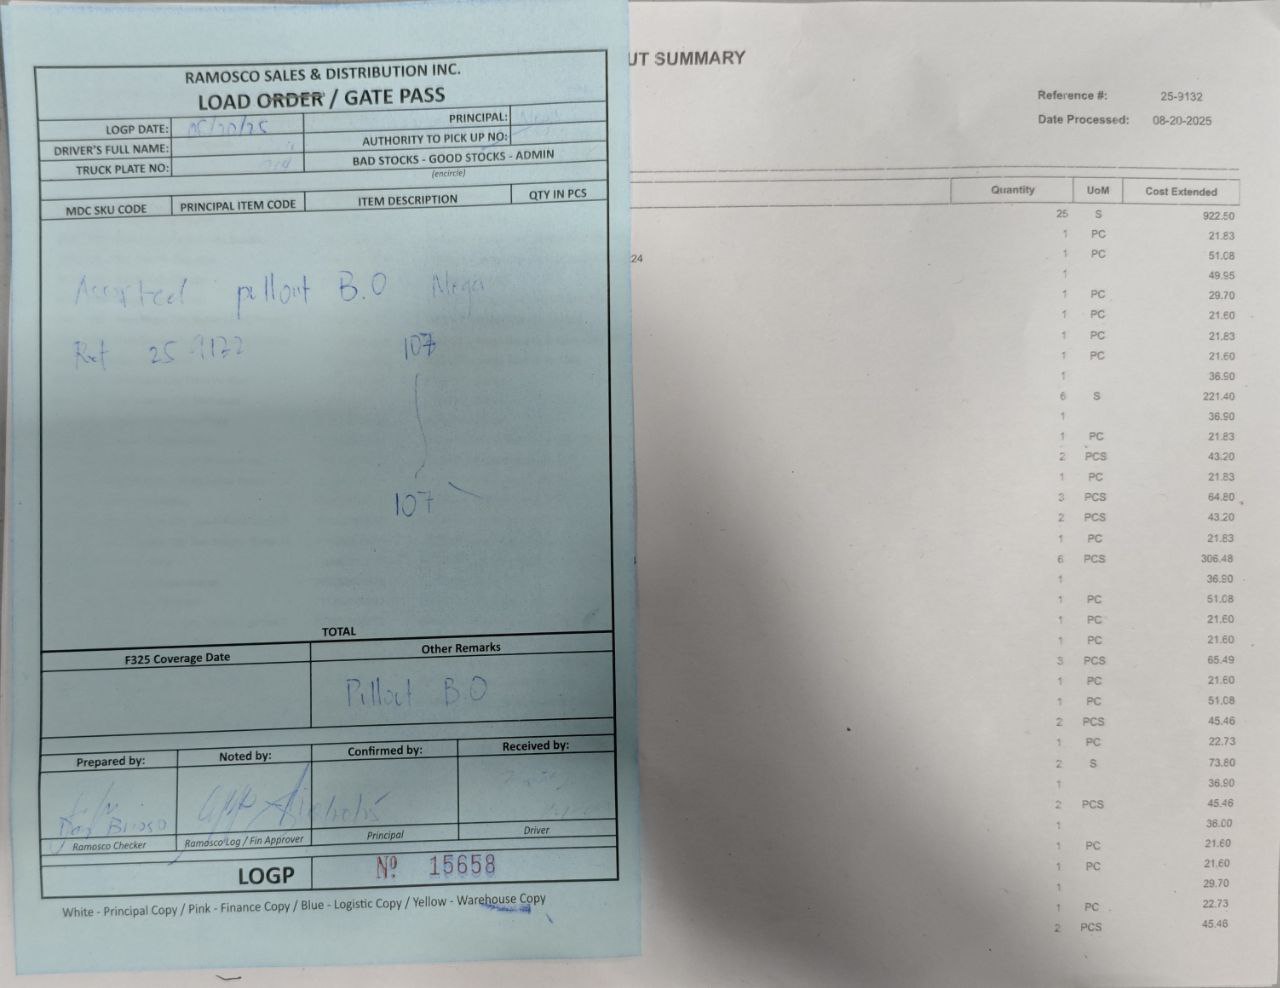 RAMOSCO SALES & DISTRIBUTION INC.
LOAD ORDER / GATE PASS
LOGP DATE: 08/20/25 PRINCIPAL:
DRIVER'S FULL NAME: AUTHORITY TO PICK UP NO:
TRUCK PLATE NO: BAD STOCKS - GOOD STOCKS - ADMIN
(encircle)
MDC SKU CODE PRINCIPAL ITEM CODE ITEM DESCRIPTION QTY IN PCS
Assorted pullout B.O Mega
Ref 25-9132 107
107
TOTAL
F325 Coverage Date Other Remarks
Pullout B O
Prepared by: Noted by: Confirmed by: Received by:
Brioso
Ramosco Checker Ramosco Log / Fin Approver Principal Driver
LOGP Nº 15658
White - Principal Copy / Pink - Finance Copy / Blue - Logistic Copy / Yellow - Warehouse Copy
UT SUMMARY
Reference #: 25-9132
Date Processed: 08-20-2025
Quantity UoM Cost Extended
25 S 922.50
1 PC 21.83
24 1 PC 51.08
1 49.95
1 PC 29.70
1 PC 21.60
1 PC 21.83
1 PC 21.60
1 36.90
6 S 221.40
1 36.90
1 PC 21.83
2 PCS 43.20
1 PC 21.83
3 PCS 64.80
2 PCS 43.20
1 PC 21.83
6 PCS 306.48
1 36.90
1 PC 51.08
1 PC 21.60
1 PC 21.60
3 PCS 65.49
1 PC 21.60
1 PC 51.08
2 PCS 45.46
1 PC 22.73
2 S 73.80
1 36.90
2 PCS 45.46
1 36.00
1 PC 21.60
1 PC 21.60
1 29.70
1 PC 22.73
2 PCS 45.46